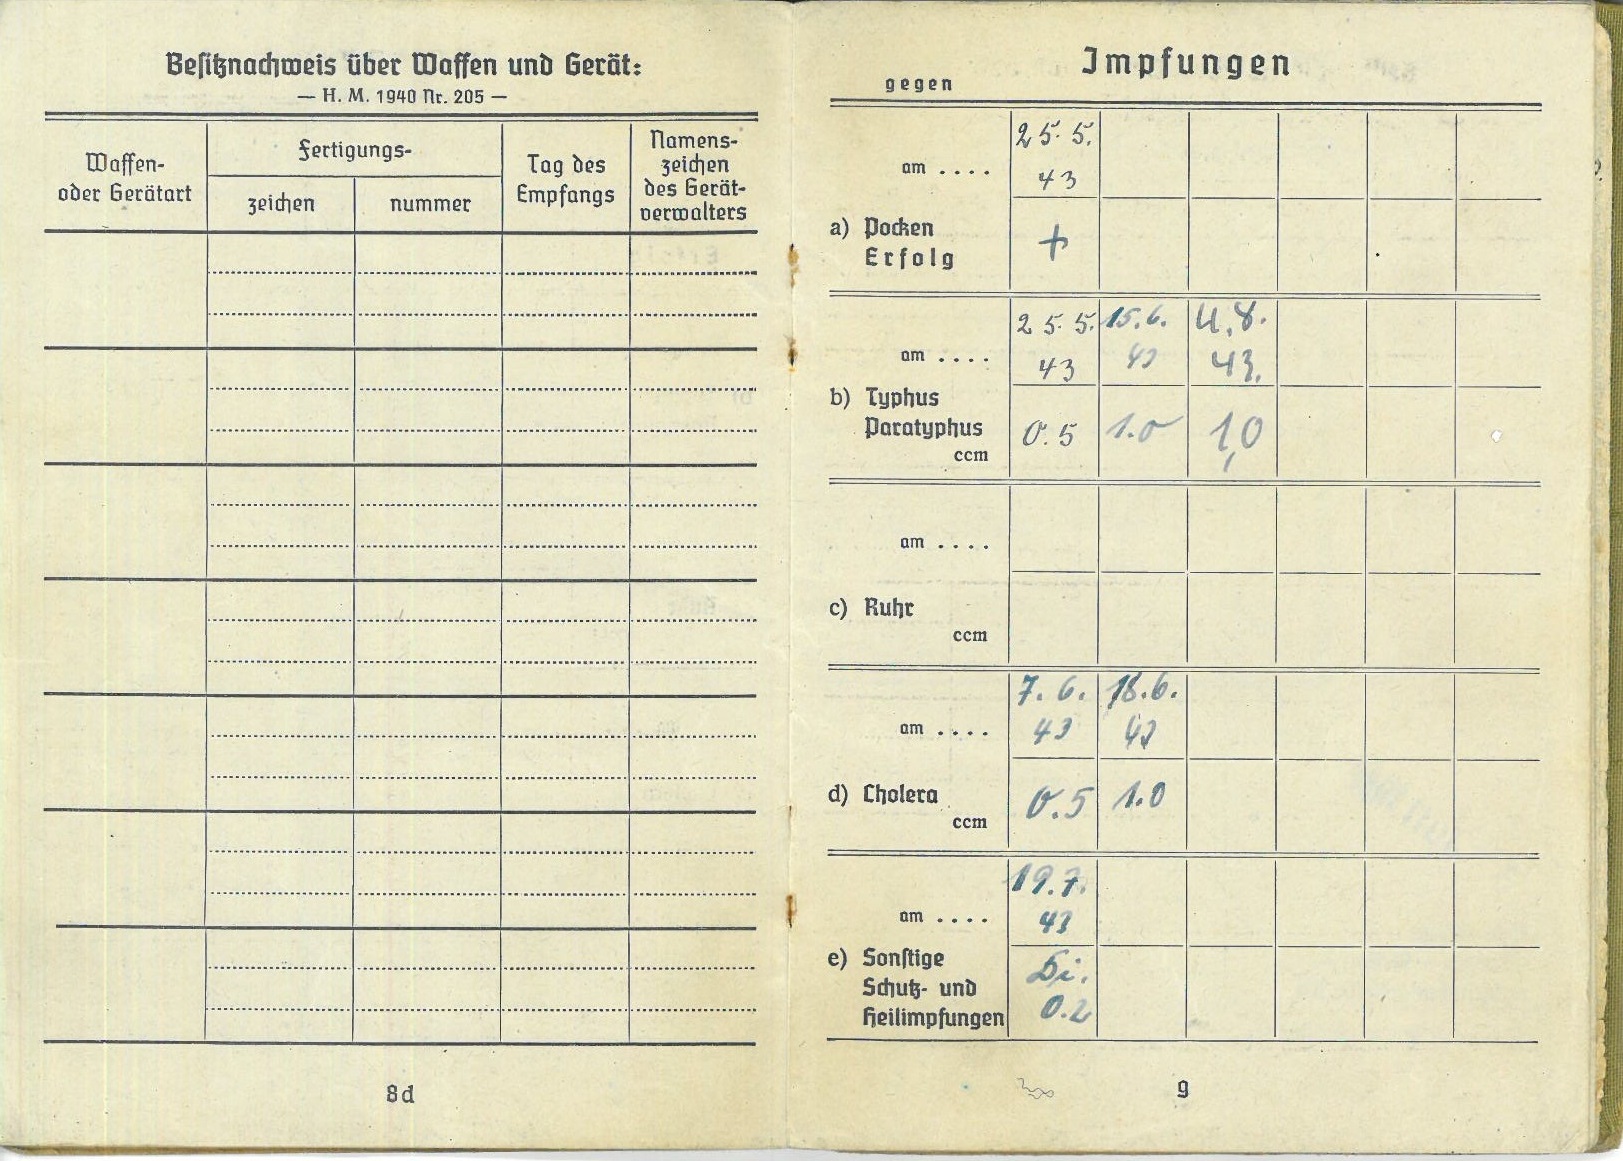 Besitznachweis über Waffen und Gerät:
— H. M. 1940 Nr. 205 —
Waffen-
oder Gerätart
Fertigungs-
zeichen
nummer
Tag des
Empfangs
Namens-
zeichen
des Gerät-
verwalters
8d
Impfungen
gegen
am ....
25. 5.
43
a) Pocken
Erfolg
+
am ....
25. 5. 15. 6. 4. 8.
43 43 43.
b) Typhus
Paratyphus
ccm
0.5 1.0 1,0
am ....
c) Ruhr
ccm
am ....
7. 6. 18. 6.
43 43
d) Cholera
ccm
0.5 1.0
am ....
19. 7.
43
e) Sonstige
Schutz- und
Heilimpfungen
Di.
0.2
9